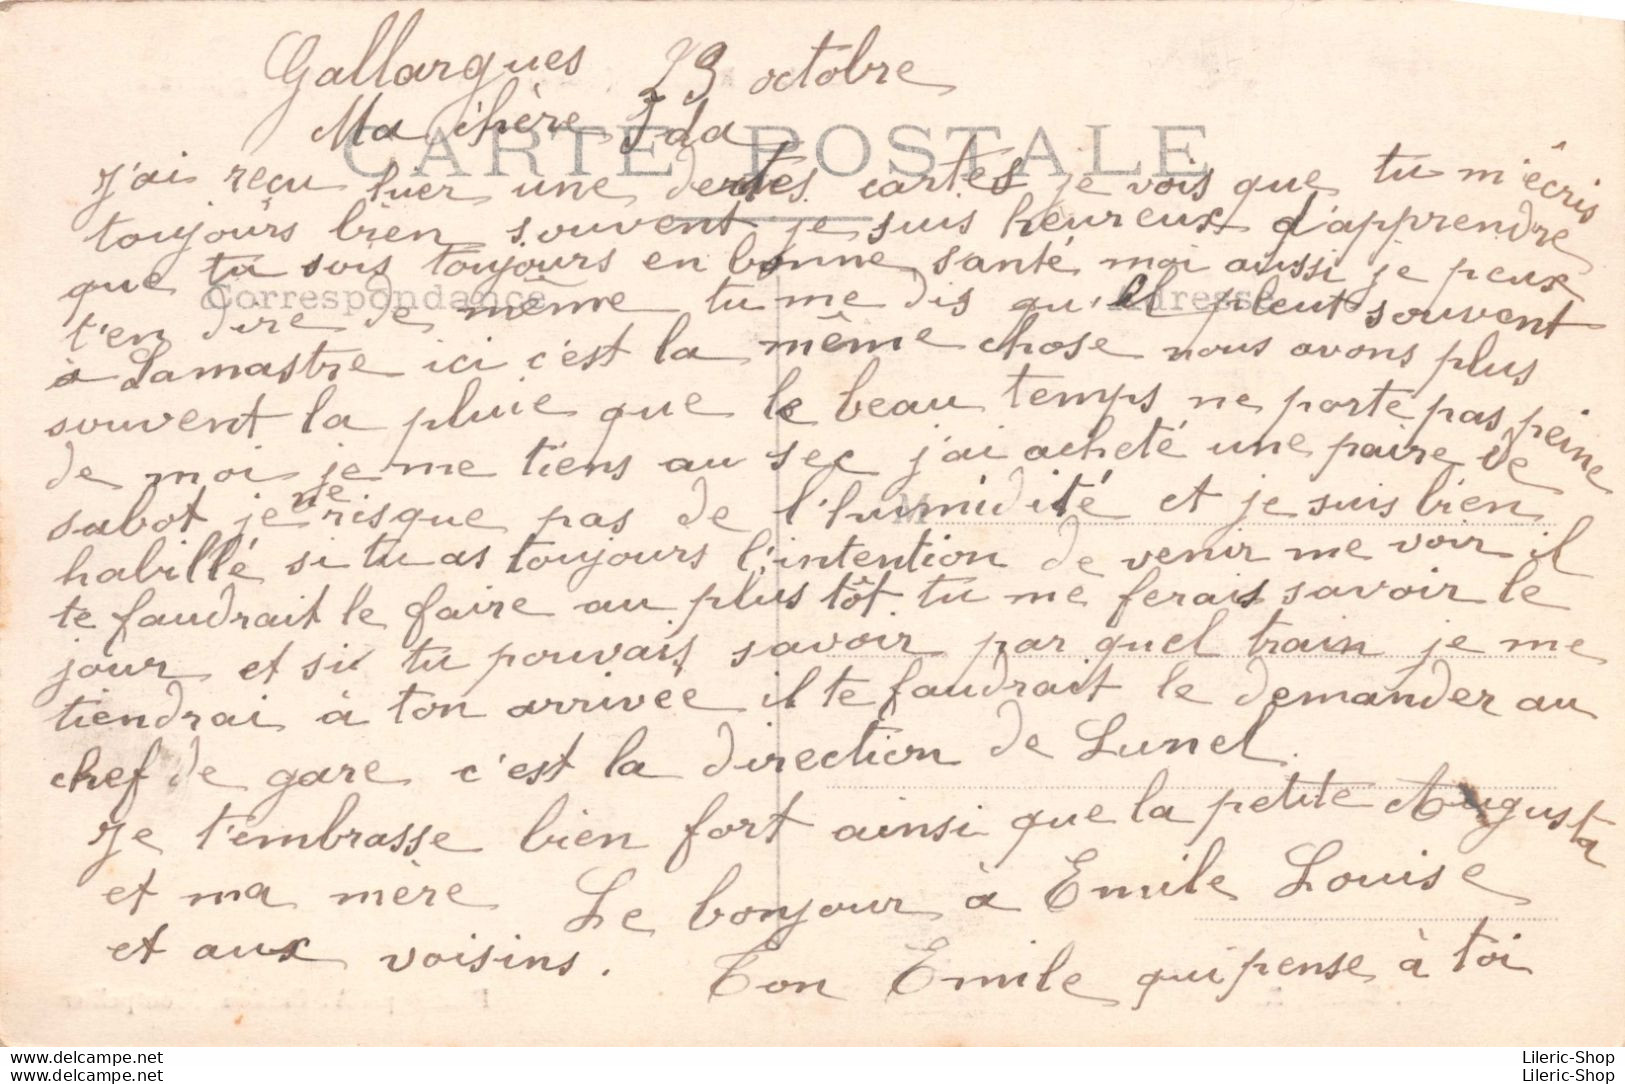 Gallargues 23 octobre
Ma chère Ida
CARTE POSTALE
J'ai reçu hier une de tes cartes je vois que tu m'écris
toujours bien souvent je suis heureux d'apprendre
que tu sois toujours en bonne santé moi aussi je peux
Correspondance
Adresse
t'en dire de même tu me dis qu'il pleut souvent
à Lamastre ici c'est la même chose nous avons plus
souvent la pluie que le beau temps ne porte pas peine
de moi je me tiens au sec j'ai acheté une paire de
sabot je ne risque pas de l'humidité et je suis bien
M
habillé si tu as toujours l'intention de venir me voir il
te faudrait le faire au plus tôt tu me ferais savoir le
jour et si tu pouvais savoir par quel train je me
tiendrai à ton arrivée il te faudrait le demander au
chef de gare c'est la direction de Lunel.
Je t'embrasse bien fort ainsi que la petite Augusta
et ma mère Le bonjour à Emile Louise
et aux voisins. Ton Emile qui pense à toi
www.delcampe.net
www.delcampe.net
Lileric-Shop
Lileric-Shop